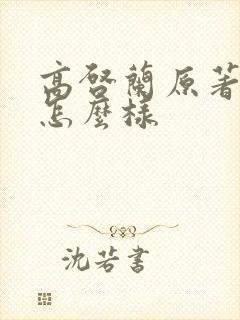 高啓蘭原著
怎麼樣
沈若書